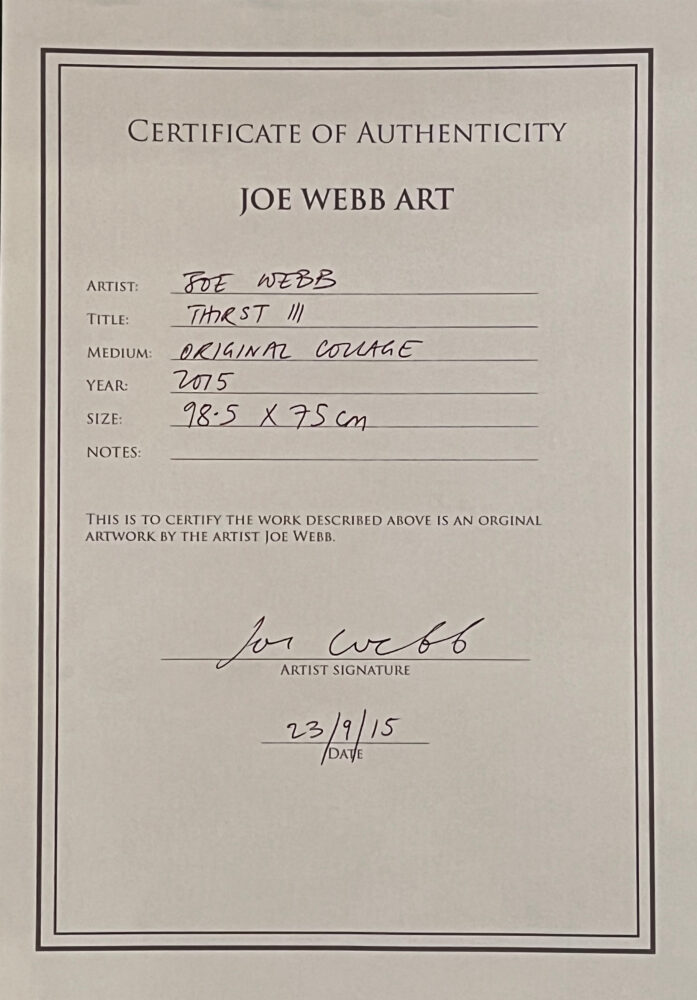 CERTIFICATE OF AUTHENTICITY
JOE WEBB ART
ARTIST: JOE WEBB
TITLE: THIRST III
MEDIUM: ORIGINAL COLLAGE
YEAR: 2015
SIZE: 98.5 X 75 cm
NOTES:
THIS IS TO CERTIFY THE WORK DESCRIBED ABOVE IS AN ORGINAL
ARTWORK BY THE ARTIST JOE WEBB.
Joe Webb
ARTIST SIGNATURE
23/9/15
DATE